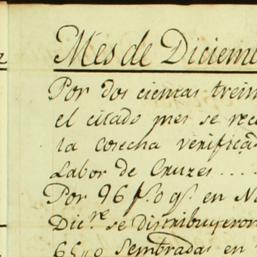 Mes de Diciem
Por dos cientas trein
el citado mes se rec
la Cosecha verificad
Labor de Cruzes....
Por 96 f.s q.e en No
Dic.re se distribuyeron
sembradas en